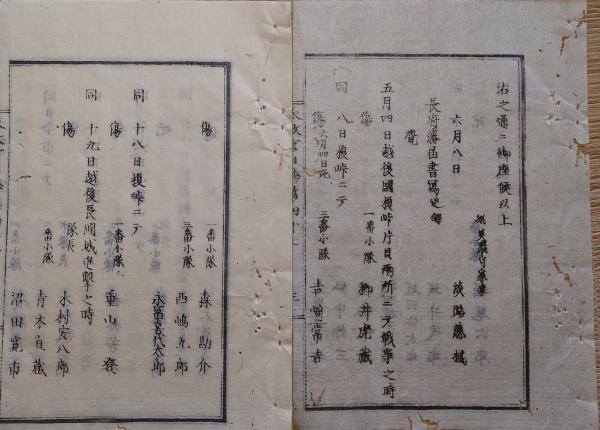 右之通ニ御座候以上
六月八日
淡路藤橘
長府藩届書写
覚
五月四日越後国榎峠片貝両所ニテ戦争之時
傷
一番小隊
柳井虎蔵
同 八日榎峠ニテ
傷
三番小隊
吉富常吉
傷
一番小隊
森勘介
三番小隊
西嶋九郎
永富喜代太郎
同 十八日榎峠ニテ
傷
一番小隊
重山登
同 十九日越後長岡城進撃之時
傷
隊長
木村安八郎
二番小隊
青木直蔵
沼田寛市